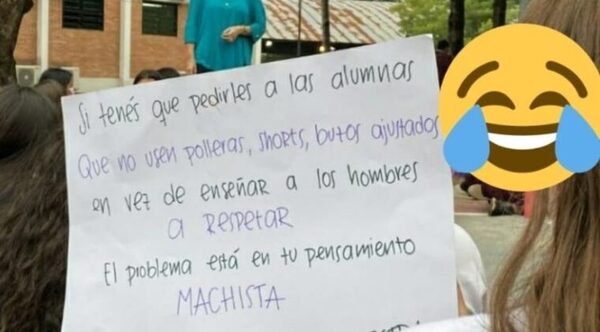 Si tenés que pedirles a las alumnas
Que no usen polleras, shorts, buzos ajustados
en vez de enseñar a los hombres
a Respetar
El problema está en tu pensamiento
MACHISTA